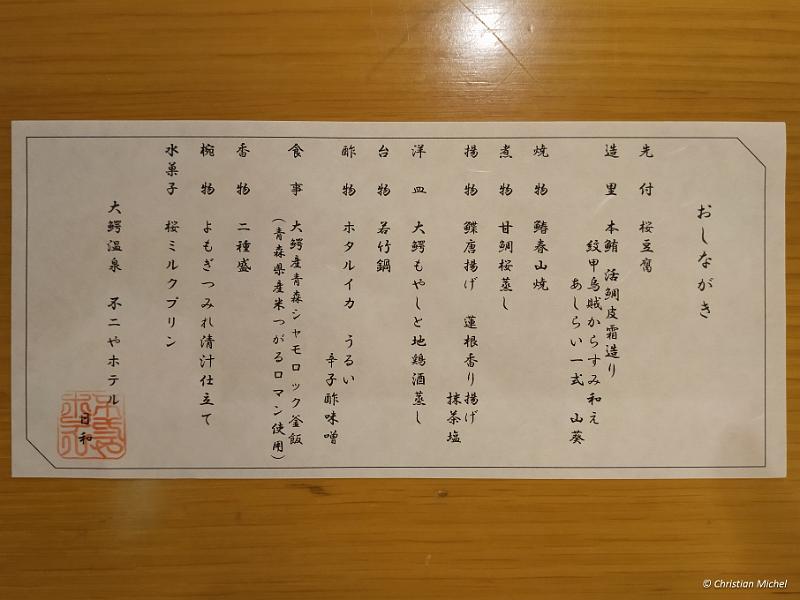 おしながき
先付 桜豆腐
造里 本鮪 活鯛皮霜造り
紋甲烏賊からすみ和え
あしらい一式 山葵
焼物 鰆春山焼
煮物 甘鯛桜蒸し
揚物 鰈唐揚げ 蓮根香り揚げ
抹茶塩
洋皿 大鰐もやしと地鶏酒蒸し
台物 若竹鍋
酢物 ホタルイカ うるい
辛子酢味噌
食事 大鰐産青森シャモロック釜飯
(青森県産米つがるロマン使用)
香物 二種盛
椀物 よもぎつみれ清汁仕立て
水菓子 桜ミルクプリン
大鰐温泉 不二やホテル
日和
© Christian Michel